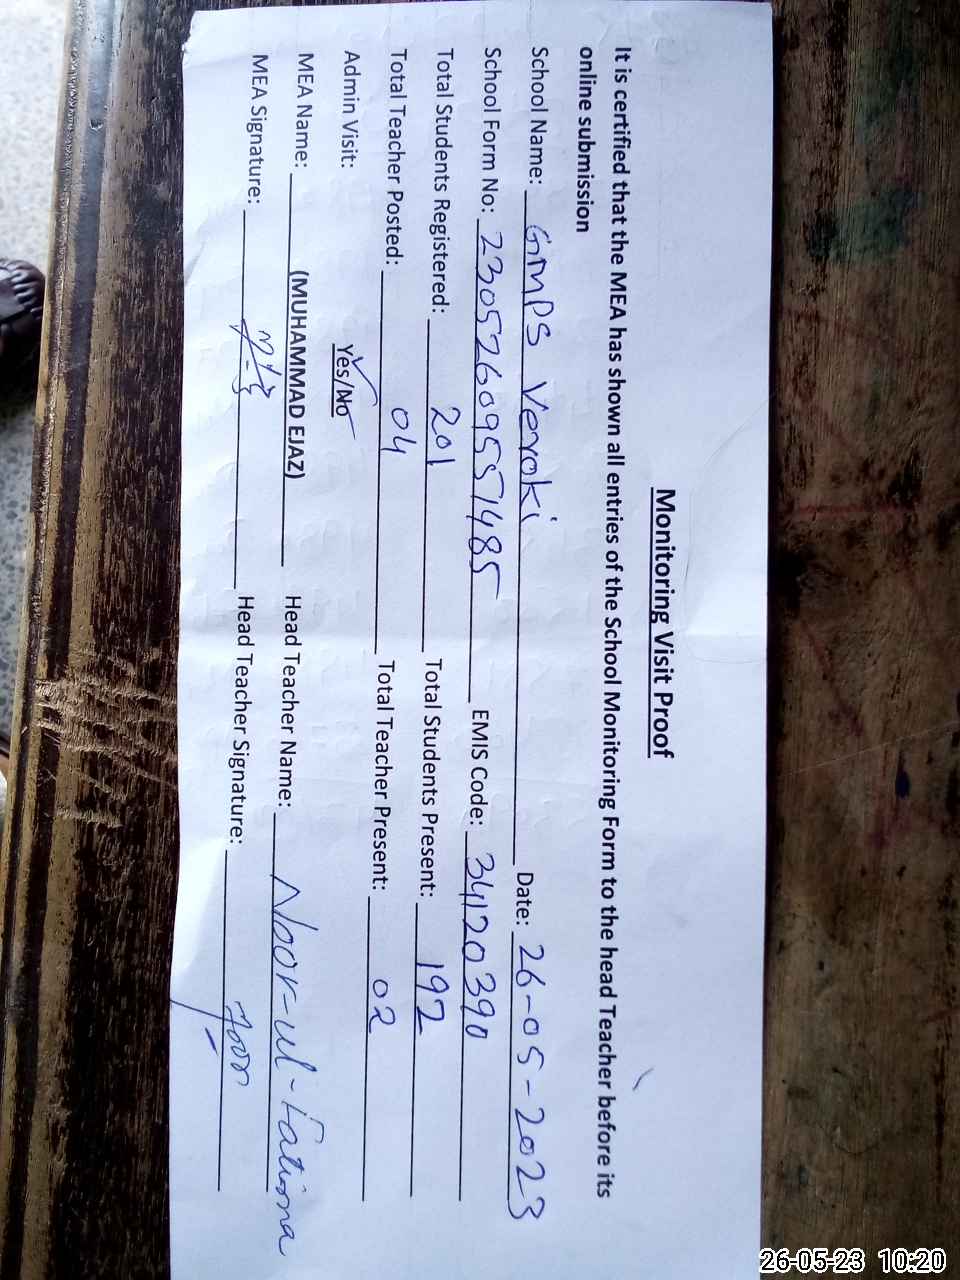 Monitoring Visit Proof
It is certified that the MEA has shown all entries of the School Monitoring Form to the head Teacher before its
online submission
School Name: GMPS Veroki Date: 26-05-2023
School Form No: 2305260955 1485 EMIS Code: 34120390
Total Students Registered: 201 Total Students Present: 192
Total Teacher Posted: 04 Total Teacher Present: 02
Admin Visit: Yes/No
MEA Name: (MUHAMMAD EJAZ) Head Teacher Name: Noor-ul-Fatima
MEA Signature: Head Teacher Signature: Noor
26-05-23 10:20